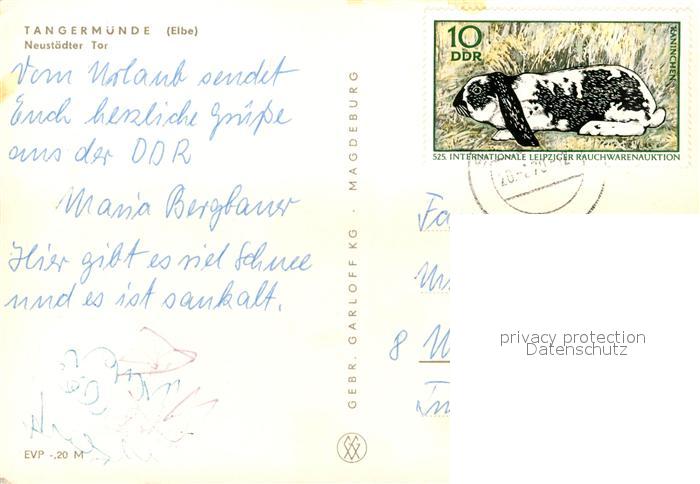 TANGERMÜNDE (Elbe)
Neustädter Tor
Vom Urlaub sendet
Euch herzliche Grüße
aus der DDR
Maria Bergbauer
Hier gibt es viel Schnee
und es ist saukalt.
EVP -,20 M
GEBR. GARLOFF KG · MAGDEBURG
10
DDR
KANINCHEN
525. INTERNATIONALE LEIPZIGER RAUCHWARENAUKTION
8
privacy protection
Datenschutz